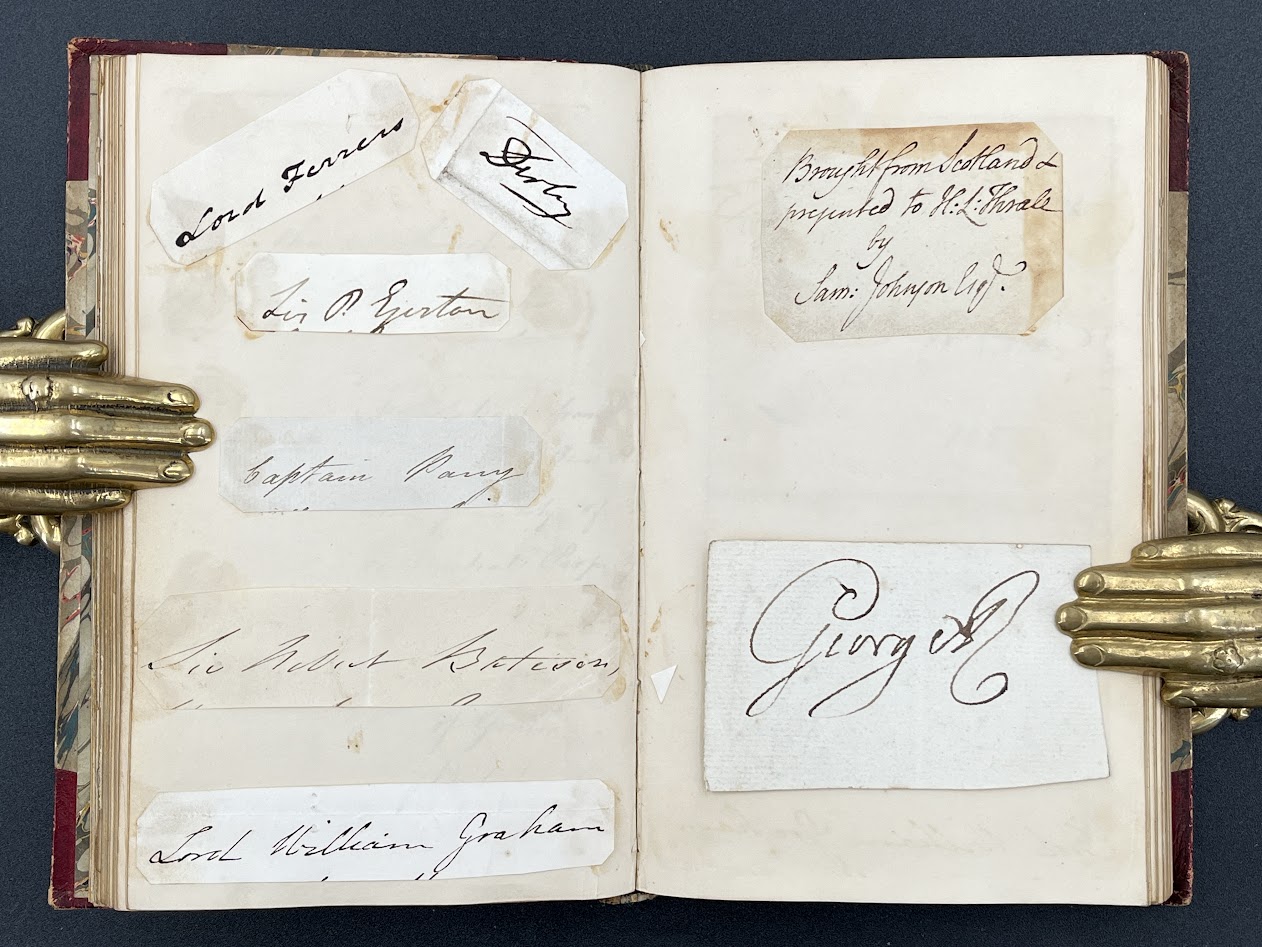 Lord Ferrers
Derby
Sir P. Egerton
Captain Parry
Sir Robert Bateson,
Lord William Graham
Brought from Scotland &
presented to H: L: Thrale
by
Sam: Johnson Esqr.
George R